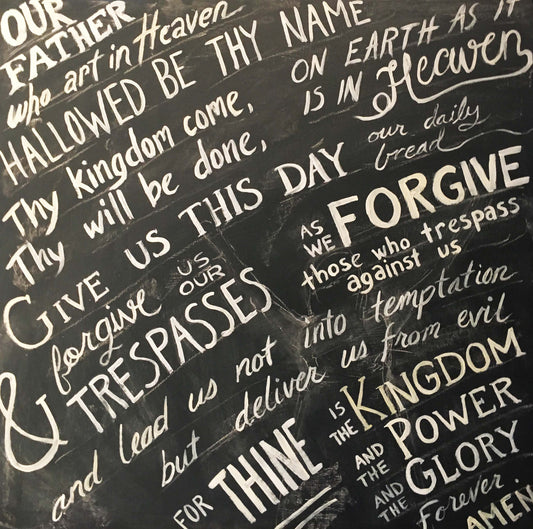 OUR
FATHER
who art in Heaven
HALLOWED BE THY NAME
Thy kingdom come,
Thy will be done,
ON EARTH AS IT
IS IN Heaven
GIVE US THIS DAY
our daily
bread
& forgive US OUR
TRESPASSES
AS WE FORGIVE
those who trespass
against us
and lead us not into temptation
but deliver us from evil
FOR THINE
IS THE KINGDOM
AND THE POWER
AND THE GLORY
Forever.
AMEN